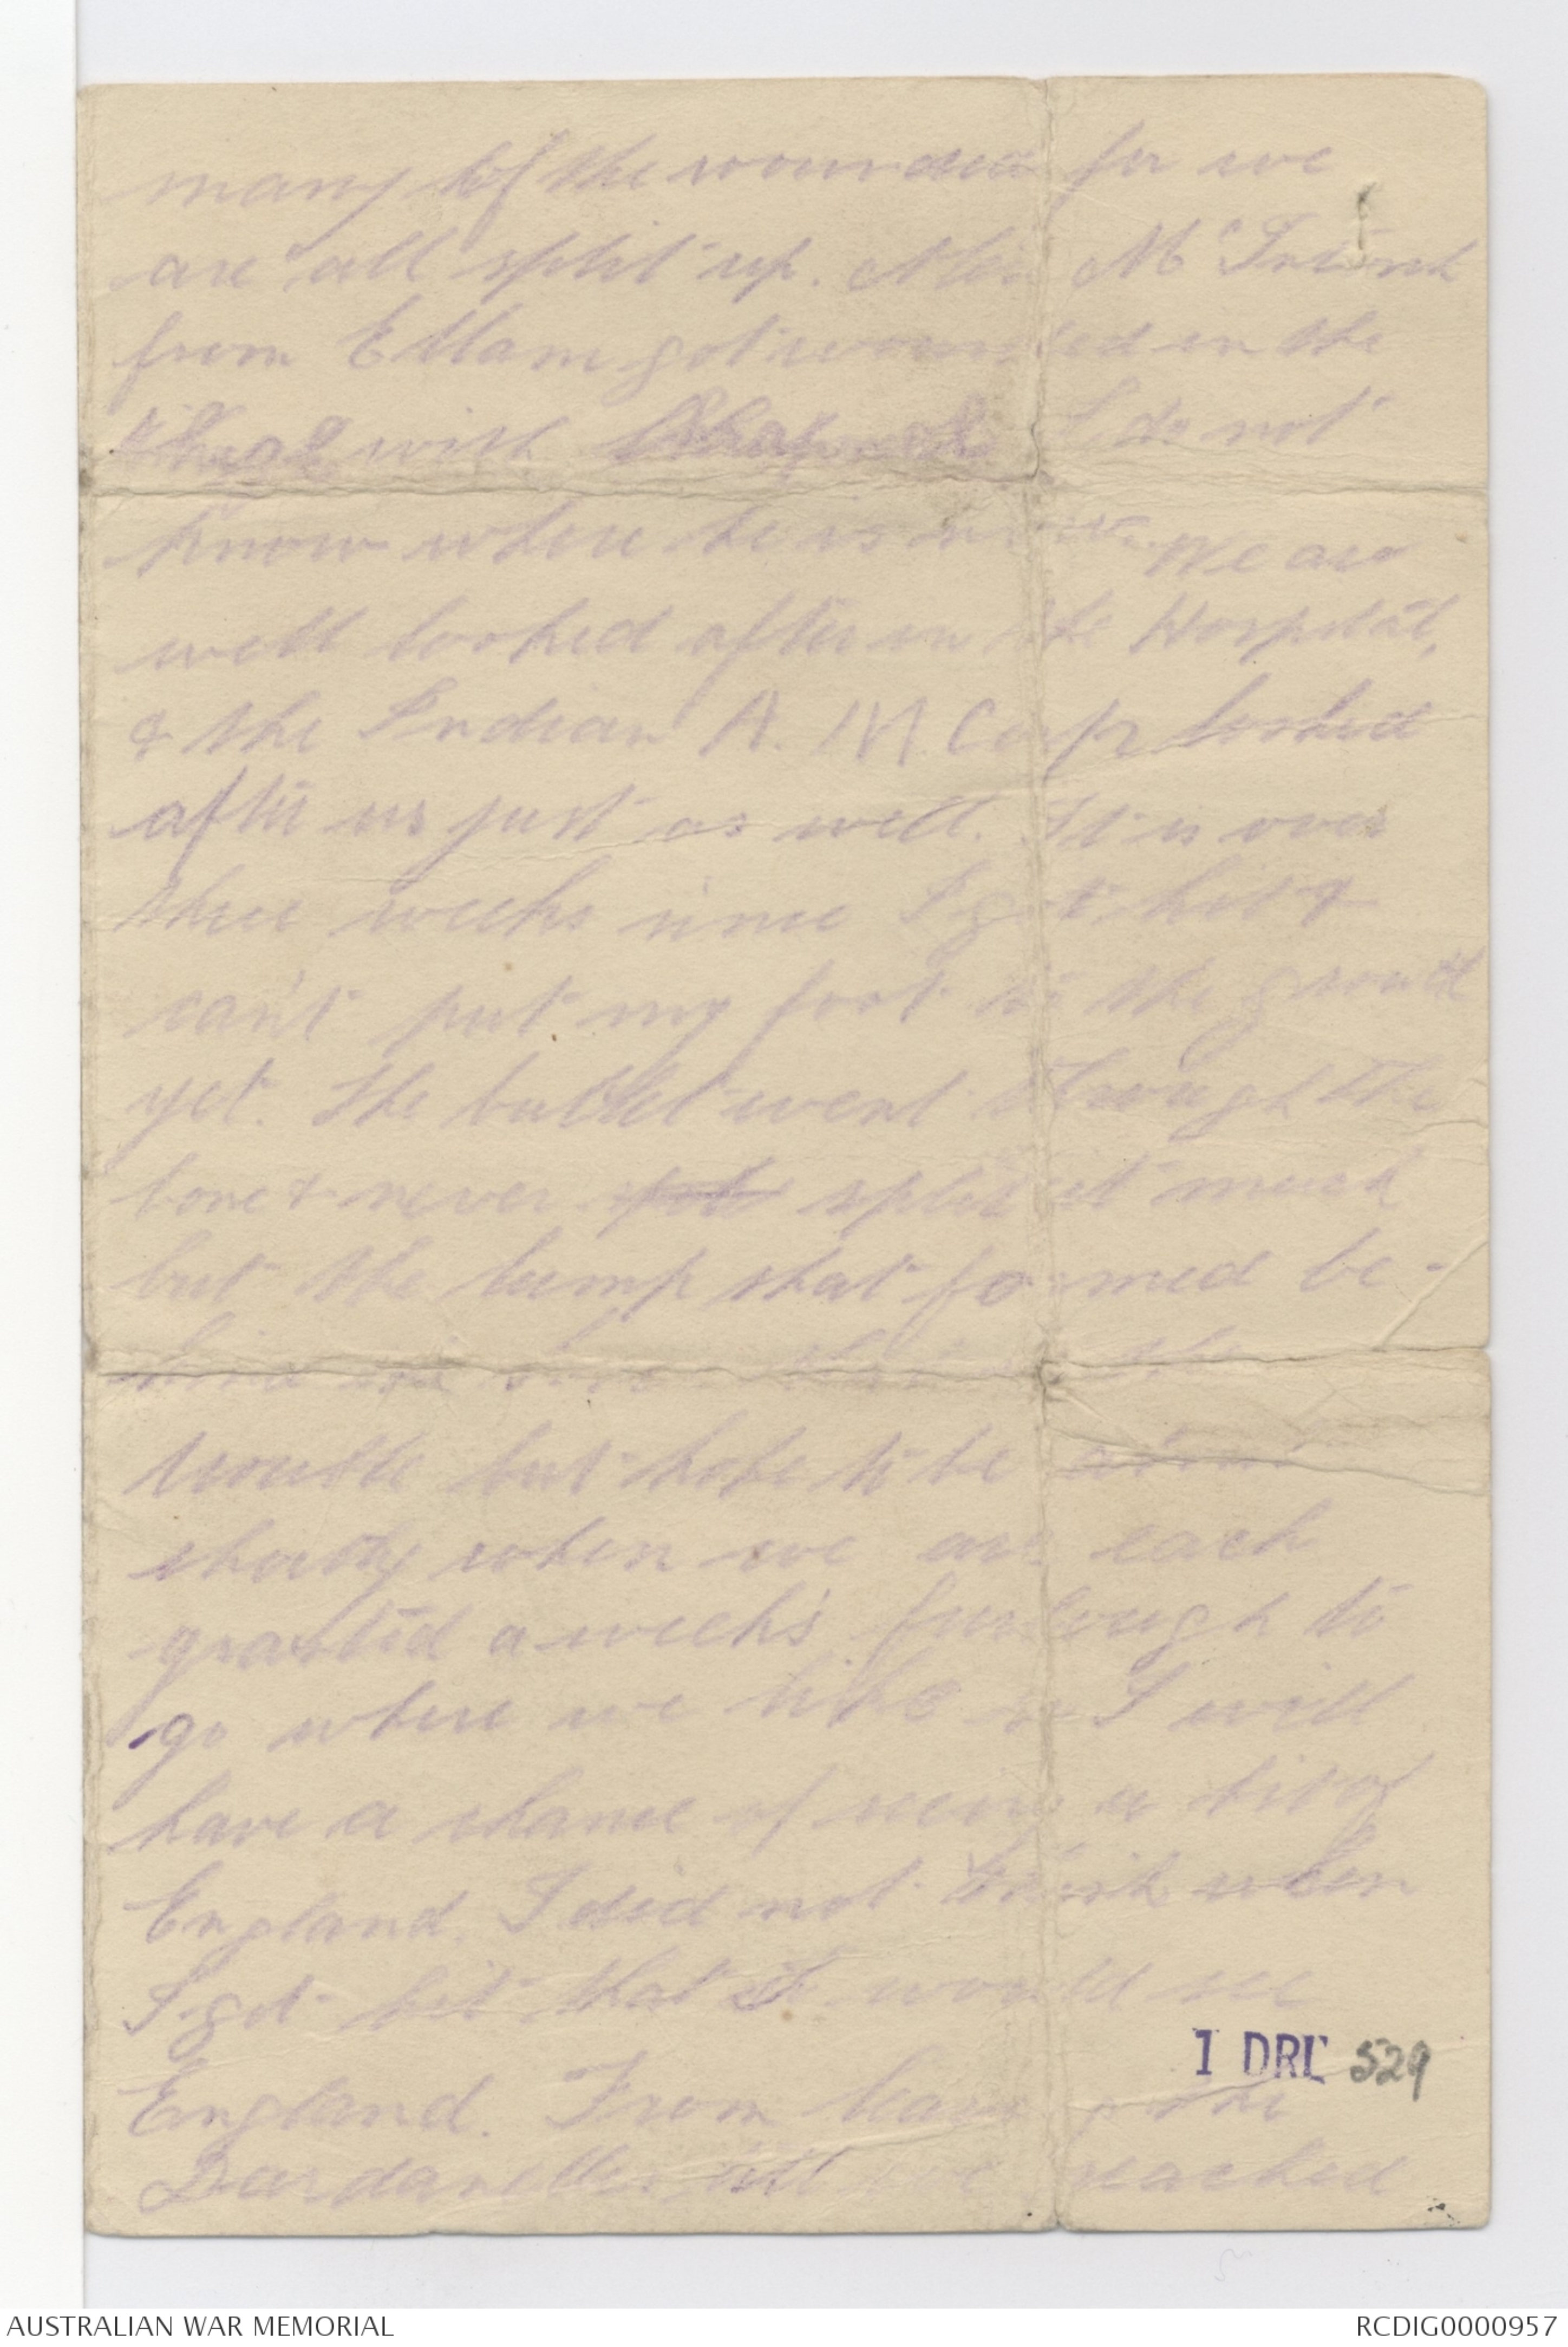 many of the wounded for we
are all split up. Alin McIntosh
from Eltham got wounded in the
thigh with Shrapnel I do not
know where he is now. We are
well looked after in the Hospital,
& the Indian A. M. Corps looked
after us just as well. It is over
three weeks since I got hit &
can't put my foot to the ground
yet. The bullet went through the
bone & never split it much
but the lump that formed be-
hind is the
trouble but hope to be
shortly when we are each
granted a weeks furlough to
go where we like so I will
have a chance of seeing a bit of
England. I did not think when
I got hit that I would see
England. From leaving the
Dardanelles till we reached
1 DRL 529
AUSTRALIAN WAR MEMORIAL
RCDIG0000957